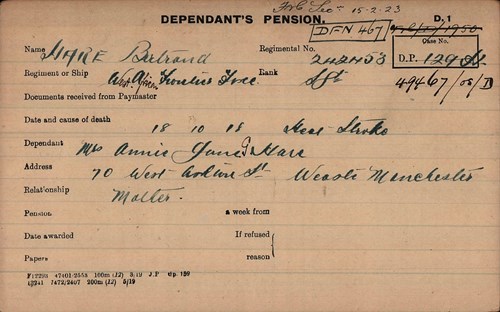 F.&C. Sec. 15-2-23
DEPENDANT'S PENSION.
DFN 467
D. 1
Case No.
Name HARE Bertrand
Regimental No. 242453
D.P. 129
Regiment or Ship West African Frontier Force
Rank Sgt
49467/08/D
Documents received from Paymaster
Date and cause of death
18 10 18 Heat Stroke
Dependant Mrs Annie Jane Hare
Address 70 West St Weaste Manchester
Relationship Mother.
Pension a week from
Date awarded If refused
Papers reason
47401-2558 100m (12) 3/19 J.P Gp. 159
7472/2407 200m (2) 5/19